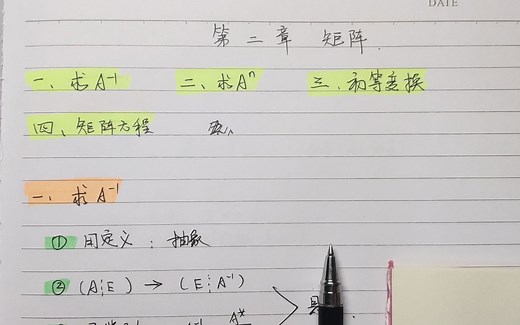 DATE
第二章 矩阵
一、求A⁻¹ 二、求Aⁿ 三、初等变换
四、矩阵方程
一、求A⁻¹
① 用定义：抽象
② (A⋮E) → (E⋮A⁻¹)
A*